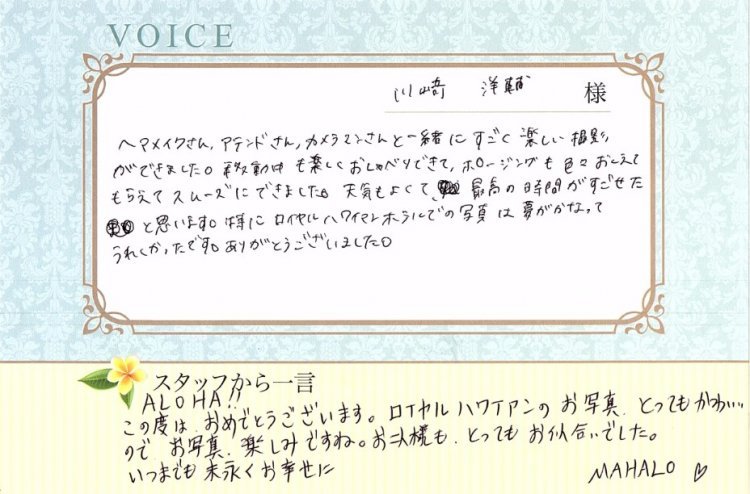 VOICE
川崎 洋輔 様
ヘアメイクさん, アテンドさん, カメラマンさんと一緒にすごく楽しい撮影
ができました。移動中も楽しくおしゃべりできて, ポージングも色々おしえて
もらえてスムーズにできました。天気もよくて 最高の時間がすごせた
と思います。特にロイヤルハワイアンホテルでの写真は夢がかなって
うれしかったです。ありがとうございました。
スタッフから一言
ALOHA!!
この度は、おめでとうございます。ロイヤルハワイアンのお写真、とってもかわいい
ので、お写真、楽しみですね。お二人様も、とってもお似合いでした。
いつまでも末永くお幸せに
MAHALO ♡